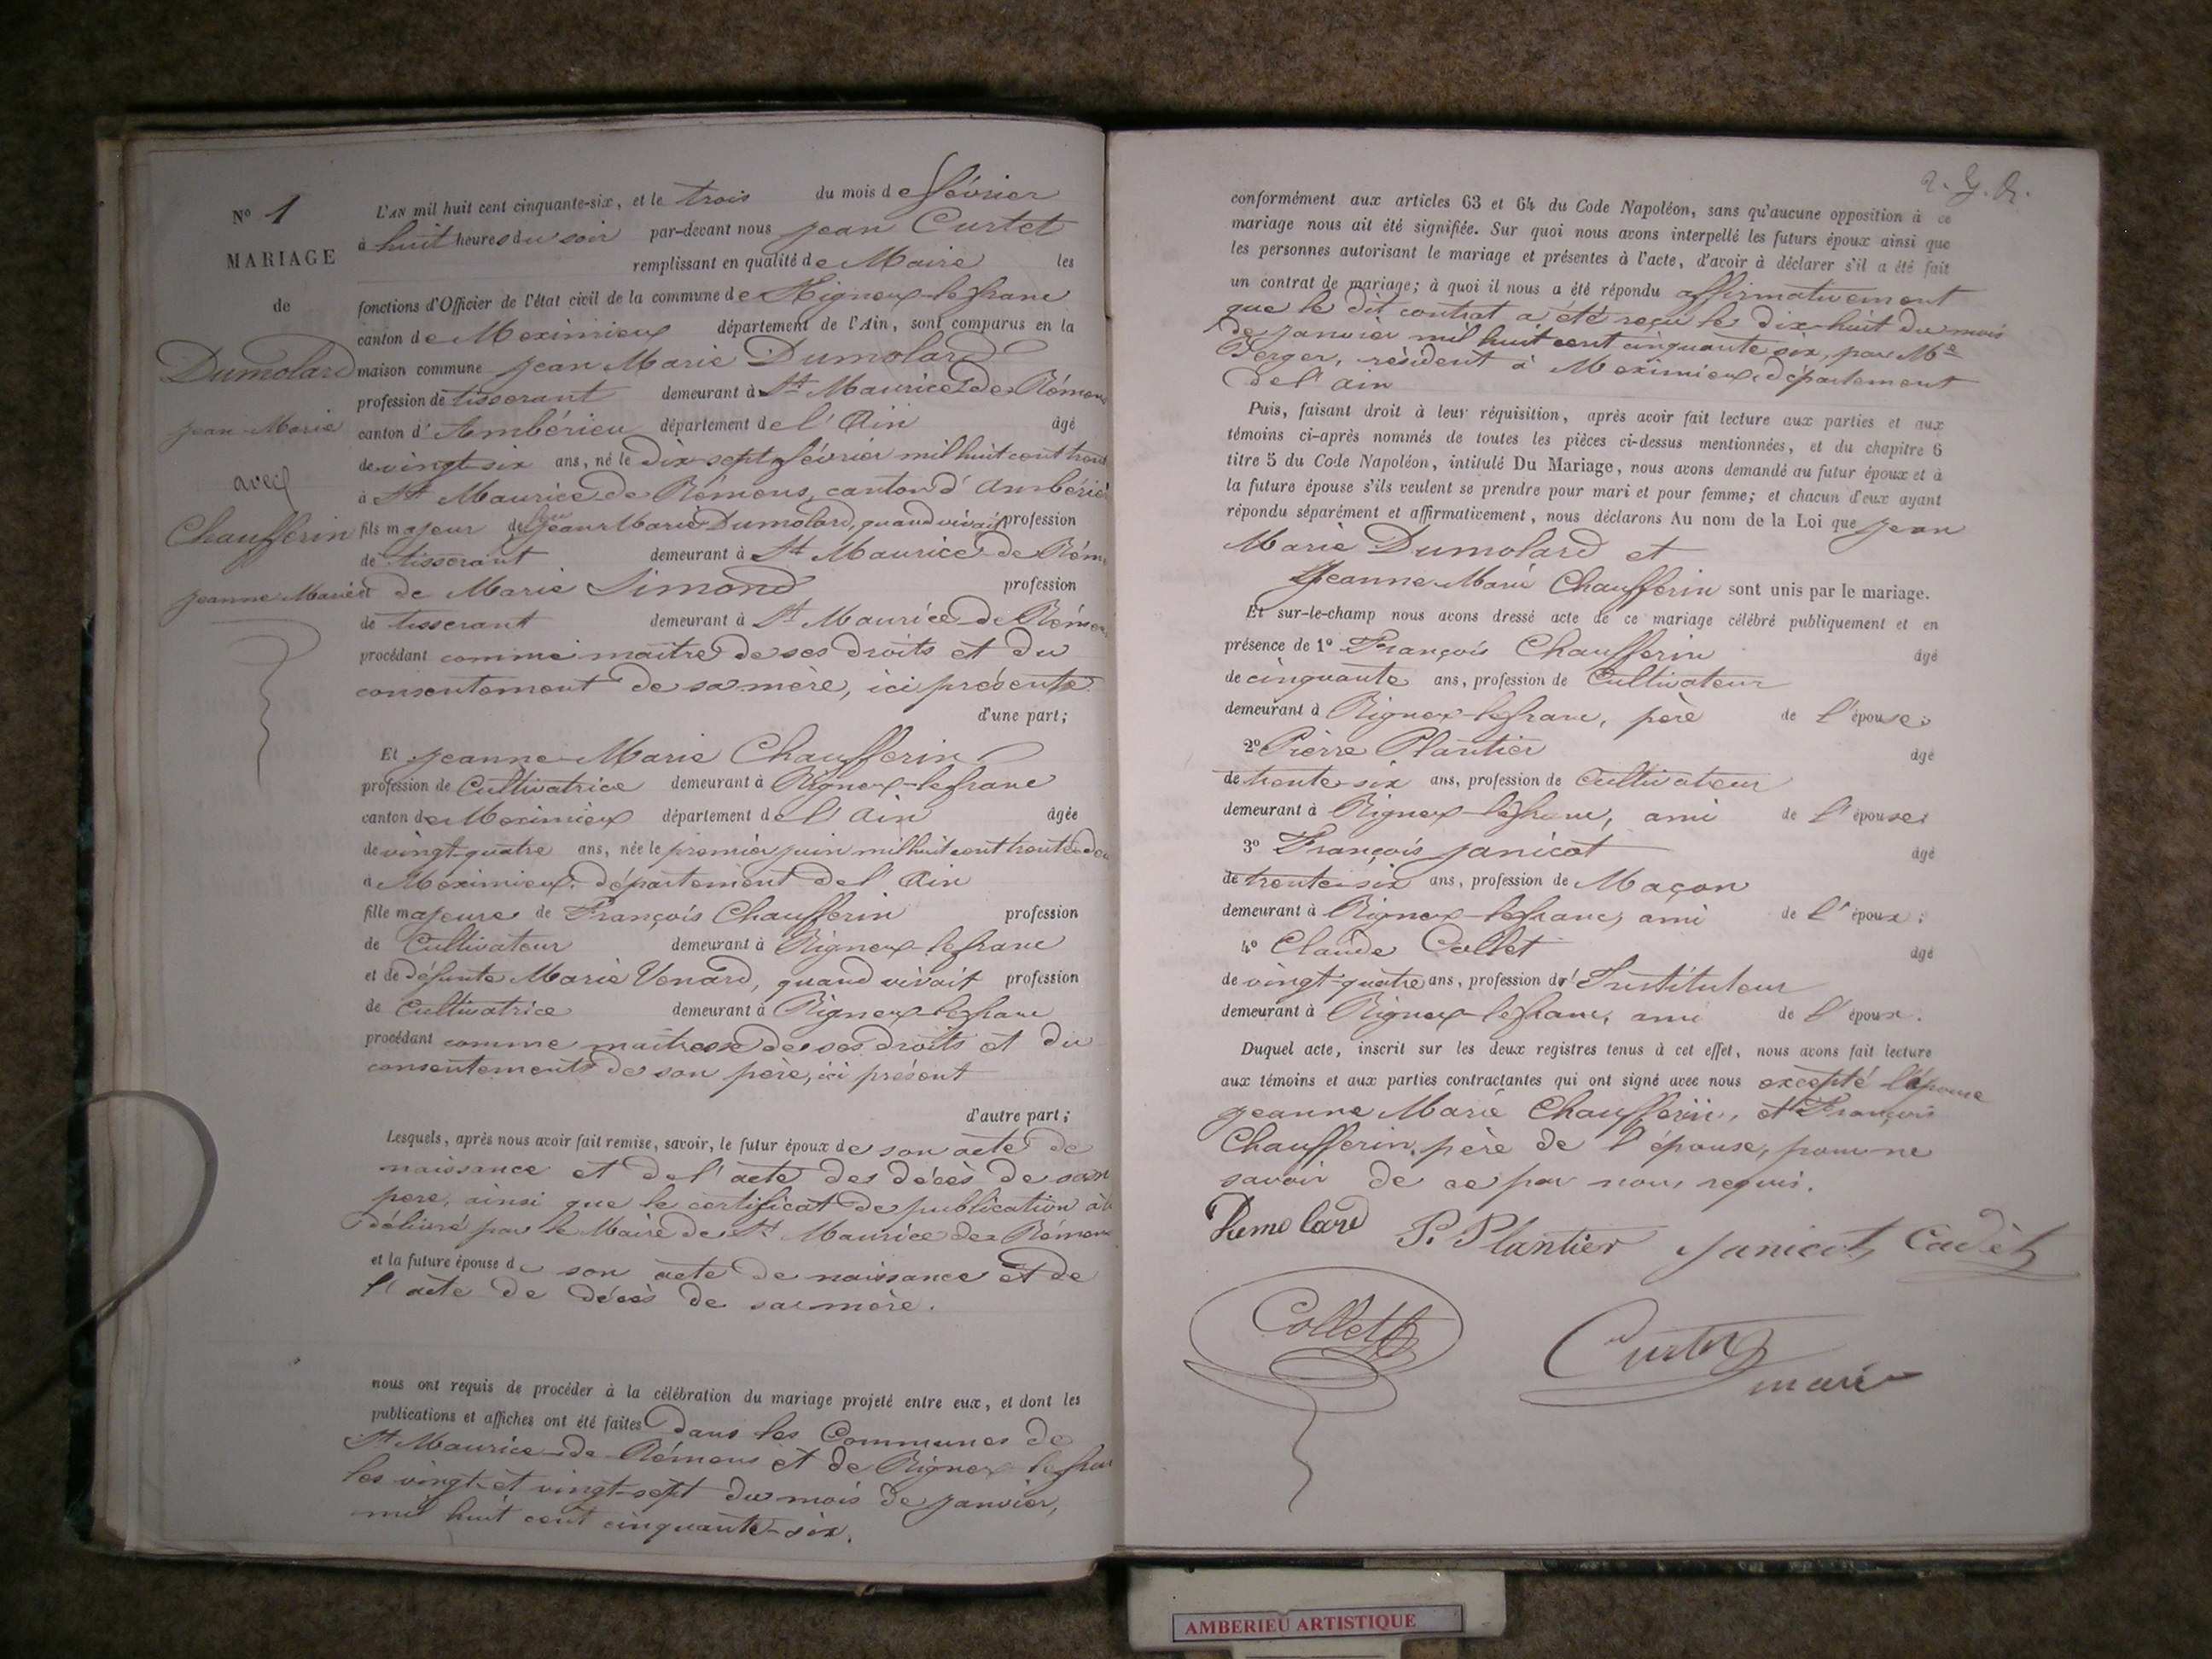 N° 1
MARIAGE
de
Dumolard
jean Marie
avec
Chaufferin
jeanne Marie
L'AN mil huit cent cinquante-six, et le trois du mois de février
à huit heures du soir par-devant nous jean Curtet
remplissant en qualité de Maire les
fonctions d'Officier de l'état civil de la commune de Rigneux-lefranc
canton de Meximieux département de l'Ain, sont comparus en la
maison commune jean Marie Dumolard
profession de tisserant demeurant à St Maurice de Rémens
canton d'Ambérieu département de l'Ain âgé
de vingt-six ans, né le dix-sept février mil huit cent trent
à St Maurice de Rémens, canton d'Ambérieu
fils majeur de feu jean Marie Dumolard, quand vivait profession
de tisserant demeurant à St Maurice de Rém
et de Marie Simond profession
de tisserant demeurant à St Maurice de Rémens
procédant comme maitre de ses droits et du
consentement de sa mère, ici présente
d'une part;
Et jeanne Marie Chaufferin
profession de Cultivatrice demeurant à Rigneux-lefranc
canton de Meximieux département de l'Ain âgée
de vingt-quatre ans, née le premier juin mil huit cent trente
à Meximieux, département de l'Ain
fille majeure de François Chaufferin profession
de Cultivateur demeurant à Rigneux-lefranc
et de défunte Marie Venard, quand vivait profession
de Cultivatrice demeurant à Rigneux-lefranc
procédant comme maitresse de ses droits et du
consentement de son père, ici présent
d'autre part;
Lesquels, après nous avoir fait remise, savoir, le futur époux de son acte de
naissance et de l'acte des décès de son
père, ainsi que le certificat de publication
délivré par le Maire de St Maurice de Rémens
et la future épouse de son acte de naissance et de
l'acte de décès de sa mère.
nous ont requis de procéder à la célébration du mariage projeté entre eux, et dont les
publications et affiches ont été faites dans les Communes de
St Maurice de Rémens et de Rigneux lefranc
les vingt et vingt-sept du mois de janvier,
mil huit cent cinquante-six.
conformément aux articles 63 et 64 du Code Napoléon, sans qu'aucune opposition à ce
mariage nous ait été signifiée. Sur quoi nous avons interpellé les futurs époux ainsi que
les personnes autorisant le mariage et présentes à l'acte, d'avoir à déclarer s'il a été fait
un contrat de mariage; à quoi il nous a été répondu affirmativement
que le dit contrat a été reçu le dix-huit du mois
de janvier mil huit cent cinquante six, par Me
Berger, résident à Meximieux, département
de l'Ain
Puis, faisant droit à leur réquisition, après avoir fait lecture aux parties et aux
témoins ci-après nommés de toutes les pièces ci-dessus mentionnées, et du chapitre 6
titre 5 du Code Napoléon, intitulé Du Mariage, nous avons demandé au futur époux et à
la future épouse s'ils veulent se prendre pour mari et pour femme; et chacun d'eux ayant
répondu séparément et affirmativement, nous déclarons Au nom de la Loi que jean
Marie Dumolard et
jeanne Marie Chaufferin sont unis par le mariage.
Et sur-le-champ nous avons dressé acte de ce mariage célébré publiquement et en
présence de 1° François Chaufferin âgé
de cinquante ans, profession de Cultivateur
demeurant à Rigneux-lefranc, père de l'épouse;
2° Pierre Plantier âgé
de trente six ans, profession de Cultivateur
demeurant à Rigneux-lefranc, ami de l'épouse;
3° François janicot âgé
de trente-six ans, profession de Maçon
demeurant à Rigneux-lefranc, ami de l'époux;
4° Claude Collet âgé
de vingt-quatre ans, profession d'Instituteur
demeurant à Rigneux-lefranc, ami de l'époux.
Duquel acte, inscrit sur les deux registres tenus à cet effet, nous avons fait lecture
aux témoins et aux parties contractantes qui ont signé avec nous excepté l'épouse
jeanne Marie Chaufferin, et François
Chaufferin, père de l'épouse, pour ne
savoir de ce par nous requis.
Dumolard P. Plantier janicot Cadet
Collet Curtet
maire
AMBERIEU ARTISTIQUE